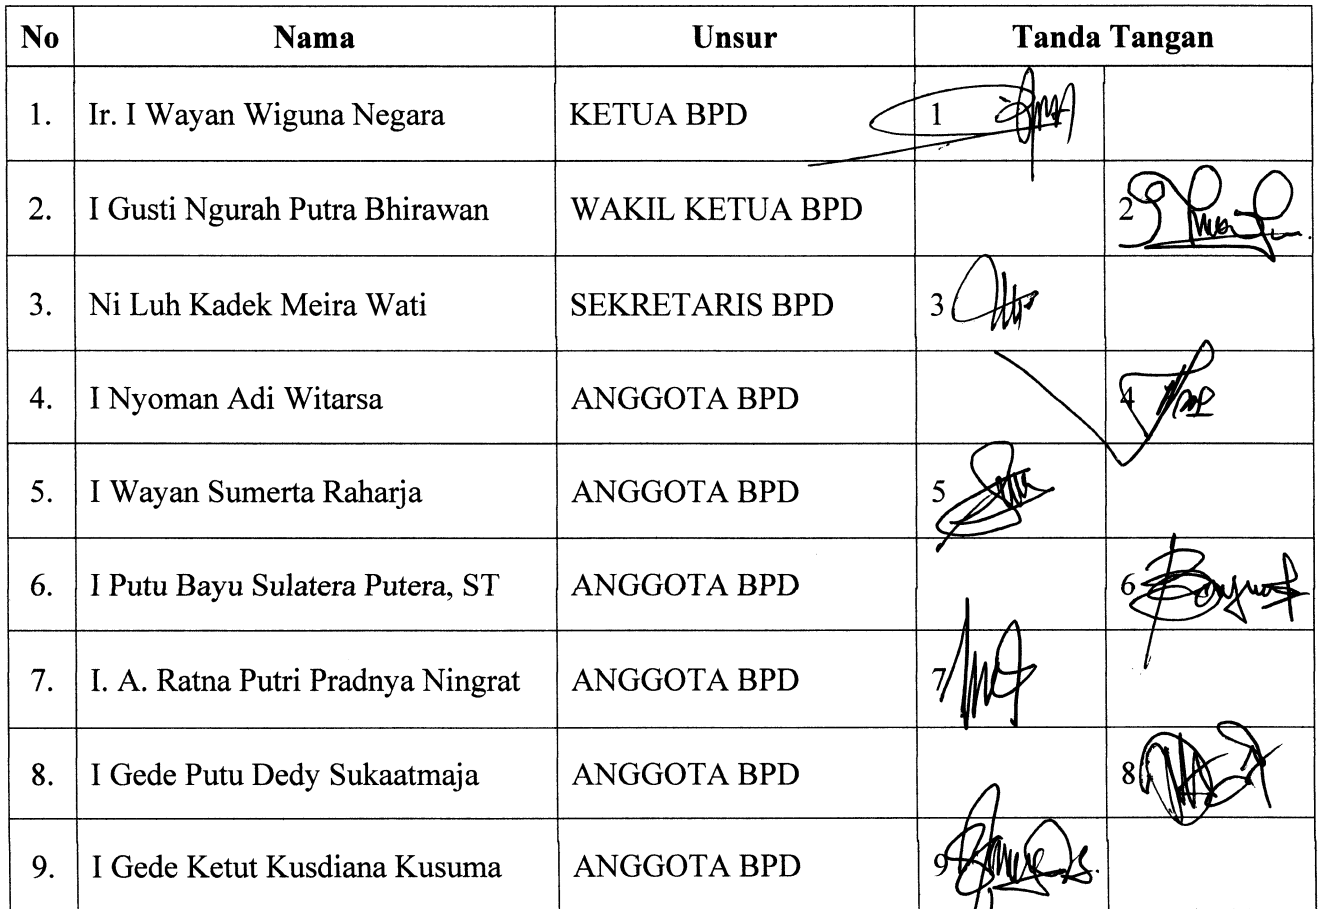 No Nama Unsur Tanda Tangan
1. Ir. I Wayan Wiguna Negara KETUA BPD 1
2. I Gusti Ngurah Putra Bhirawan WAKIL KETUA BPD 2
3. Ni Luh Kadek Meira Wati SEKRETARIS BPD 3
4. I Nyoman Adi Witarsa ANGGOTA BPD 4
5. I Wayan Sumerta Raharja ANGGOTA BPD 5
6. I Putu Bayu Sulatera Putera, ST ANGGOTA BPD 6
7. I. A. Ratna Putri Pradnya Ningrat ANGGOTA BPD 7
8. I Gede Putu Dedy Sukaatmaja ANGGOTA BPD 8
9. I Gede Ketut Kusdiana Kusuma ANGGOTA BPD 9